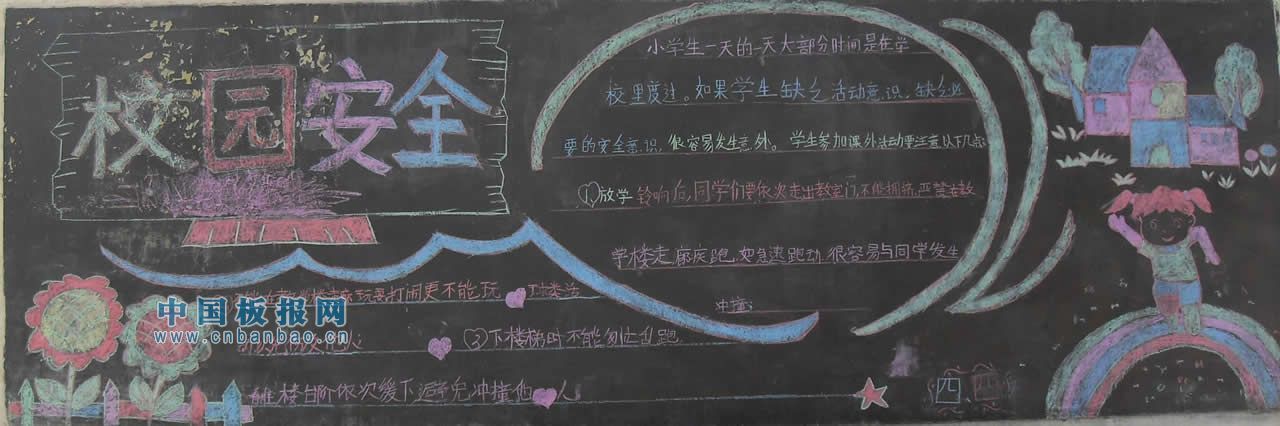 校园安全
小学生一天的一天大部分时间是在学
校里度过。如果学生缺乏活动意识,缺乏必
要的安全意识,很容易发生意外。学生参加课外活动要注意以下几点:
(1)放学铃响后,同学们要依次走出教室门,不能拥挤,严禁在教
学楼走廊疾跑,如急速跑动,很容易与同学发生
冲撞;
玩耍打闹更不能玩
(3)下楼梯时不能匆忙乱跑
楼台阶依次缓下避免冲撞他人
四
中国板报网
www.cnbanbao.cn